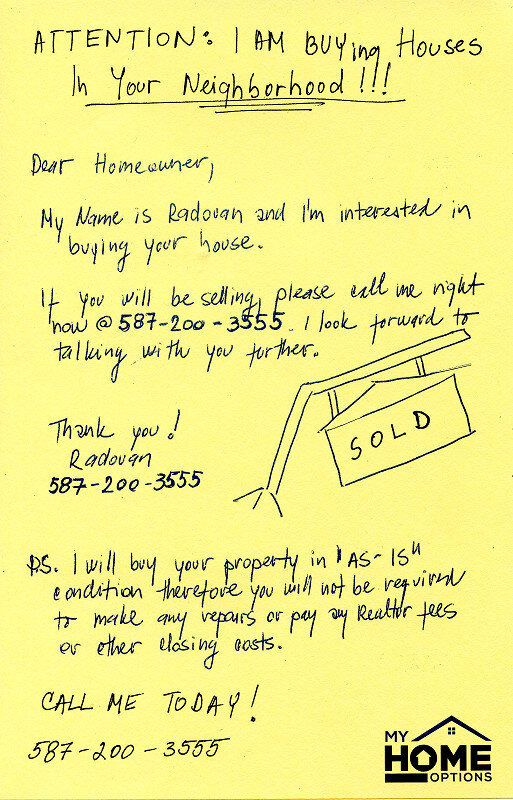 ATTENTION: I AM BUYing HOUSES
In YOUR Neighborhood!!!
Dear Homeowner,
My Name is Radovan and I'm interested in
buying your house.
If you will be selling, please call me right
now @ 587-200-3555. I look forward to
talking with you further.
SOLD
Thank you!
Radovan
587-200-3555
P.S. I will buy your property in "AS-IS"
condition therefore you will not be required
to make any repairs or pay any Realtor fees
or other closing costs.
CALL ME TODAY!
587-200-3555
MY
HOME
OPTIONS